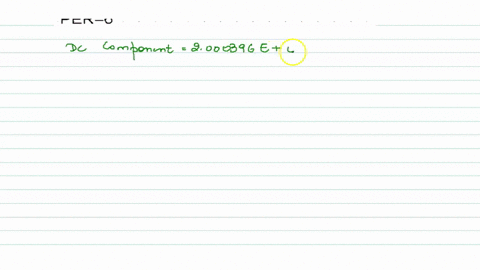 PER-6
DC Component = 2.000896 E+